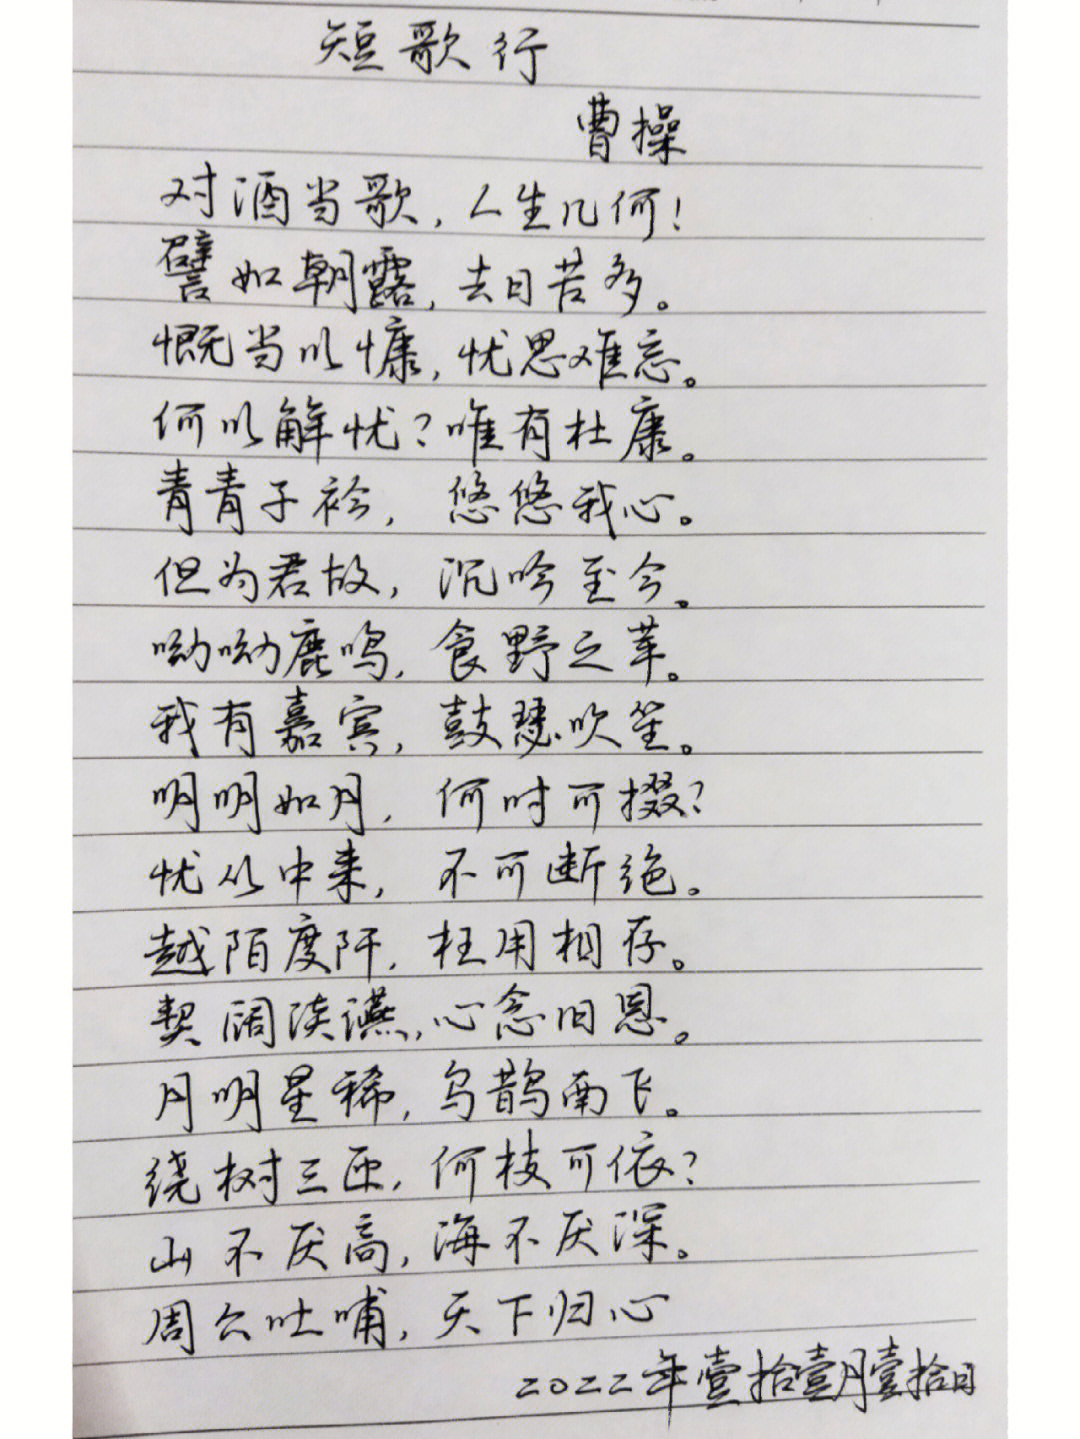 短歌行
曹操
对酒当歌，人生几何！
譬如朝露，去日苦多。
慨当以慷，忧思难忘。
何以解忧？唯有杜康。
青青子衿，悠悠我心。
但为君故，沉吟至今。
呦呦鹿鸣，食野之苹。
我有嘉宾，鼓瑟吹笙。
明明如月，何时可掇？
忧从中来，不可断绝。
越陌度阡，枉用相存。
契阔谈讌，心念旧恩。
月明星稀，乌鹊南飞。
绕树三匝，何枝可依？
山不厌高，海不厌深。
周公吐哺，天下归心
2022年壹拾壹月壹拾日